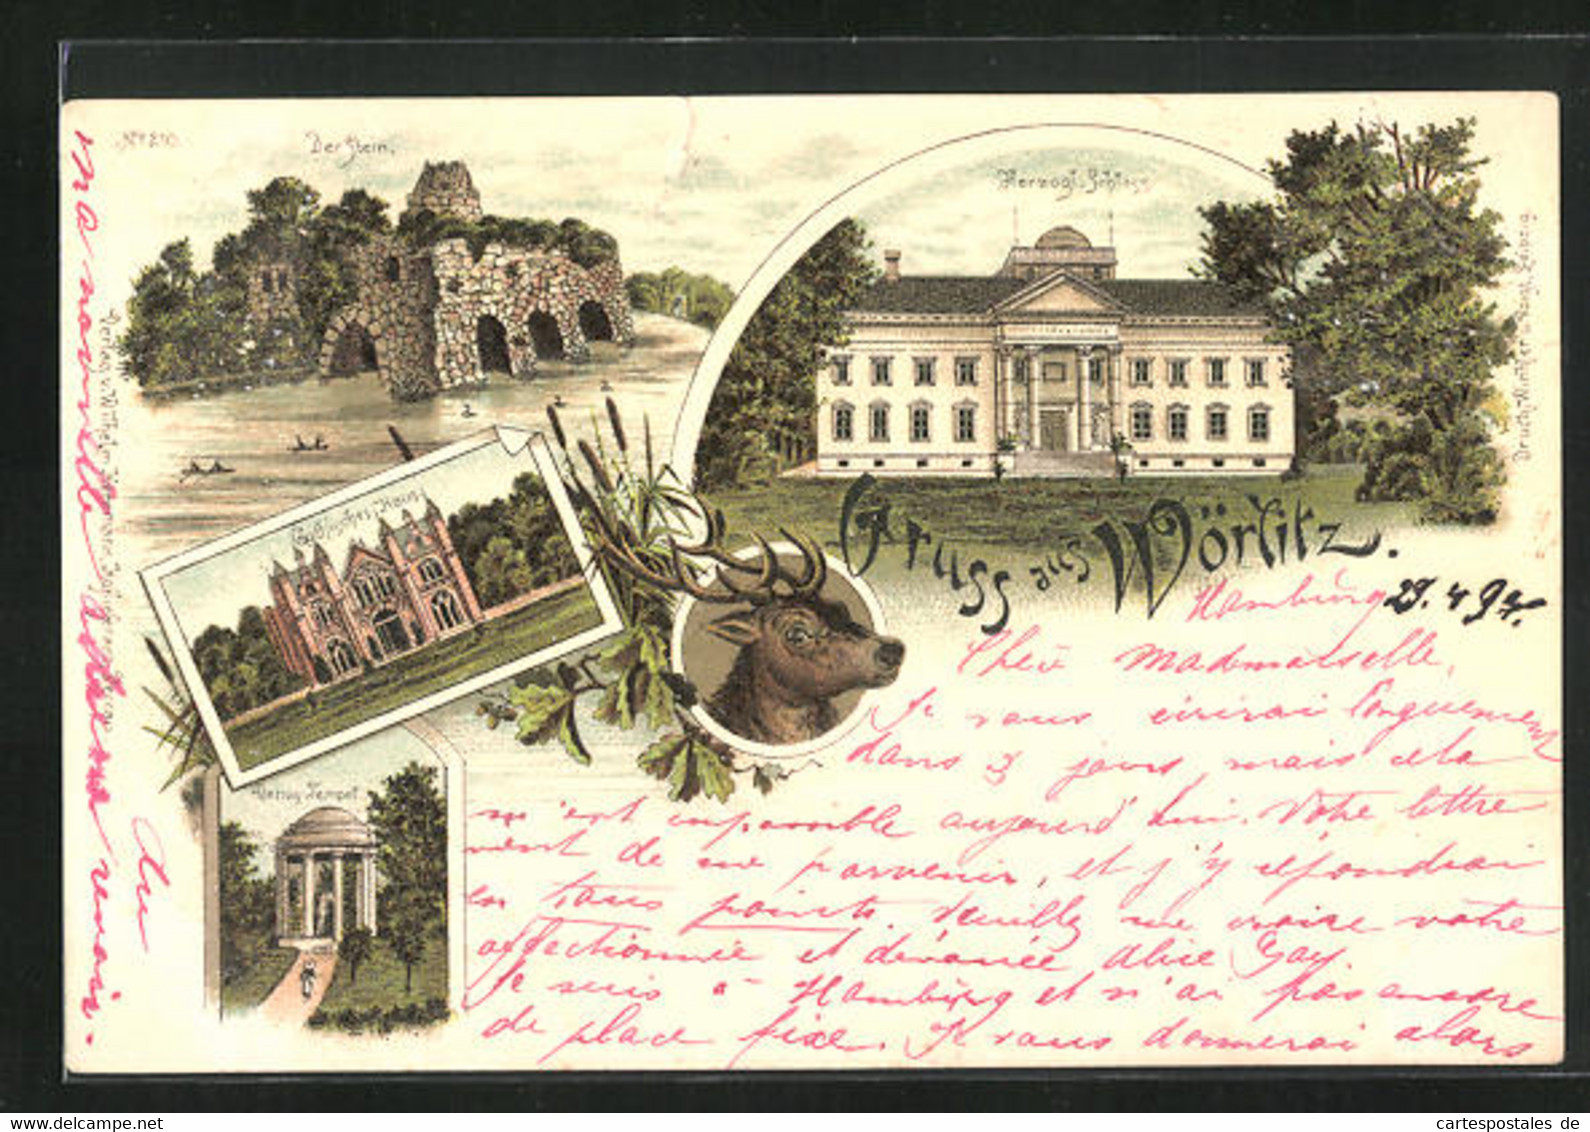 No 210.
Der Stein.
Herzogl. Schloss
Gothisches Haus
Venus Tempel
Gruss aus Wörlitz.
Hambürg 29. 4 94.
Chère Mademoiselle,
Je vous écrirai longuement
dans 3 jours, mais cela
m'est impossible aujourd'hui. Votre lettre
vient de me parvenir, et j'y répondrai
en tous points. Veuillez me croire votre
affectionnée et dévouée, Alice Gay.
Je suis à Hambürg et n'ai pas encore
de place fixe. Je vous donnerai alors
ma nouvelle adresse. Au
revoir.
cartespostales de